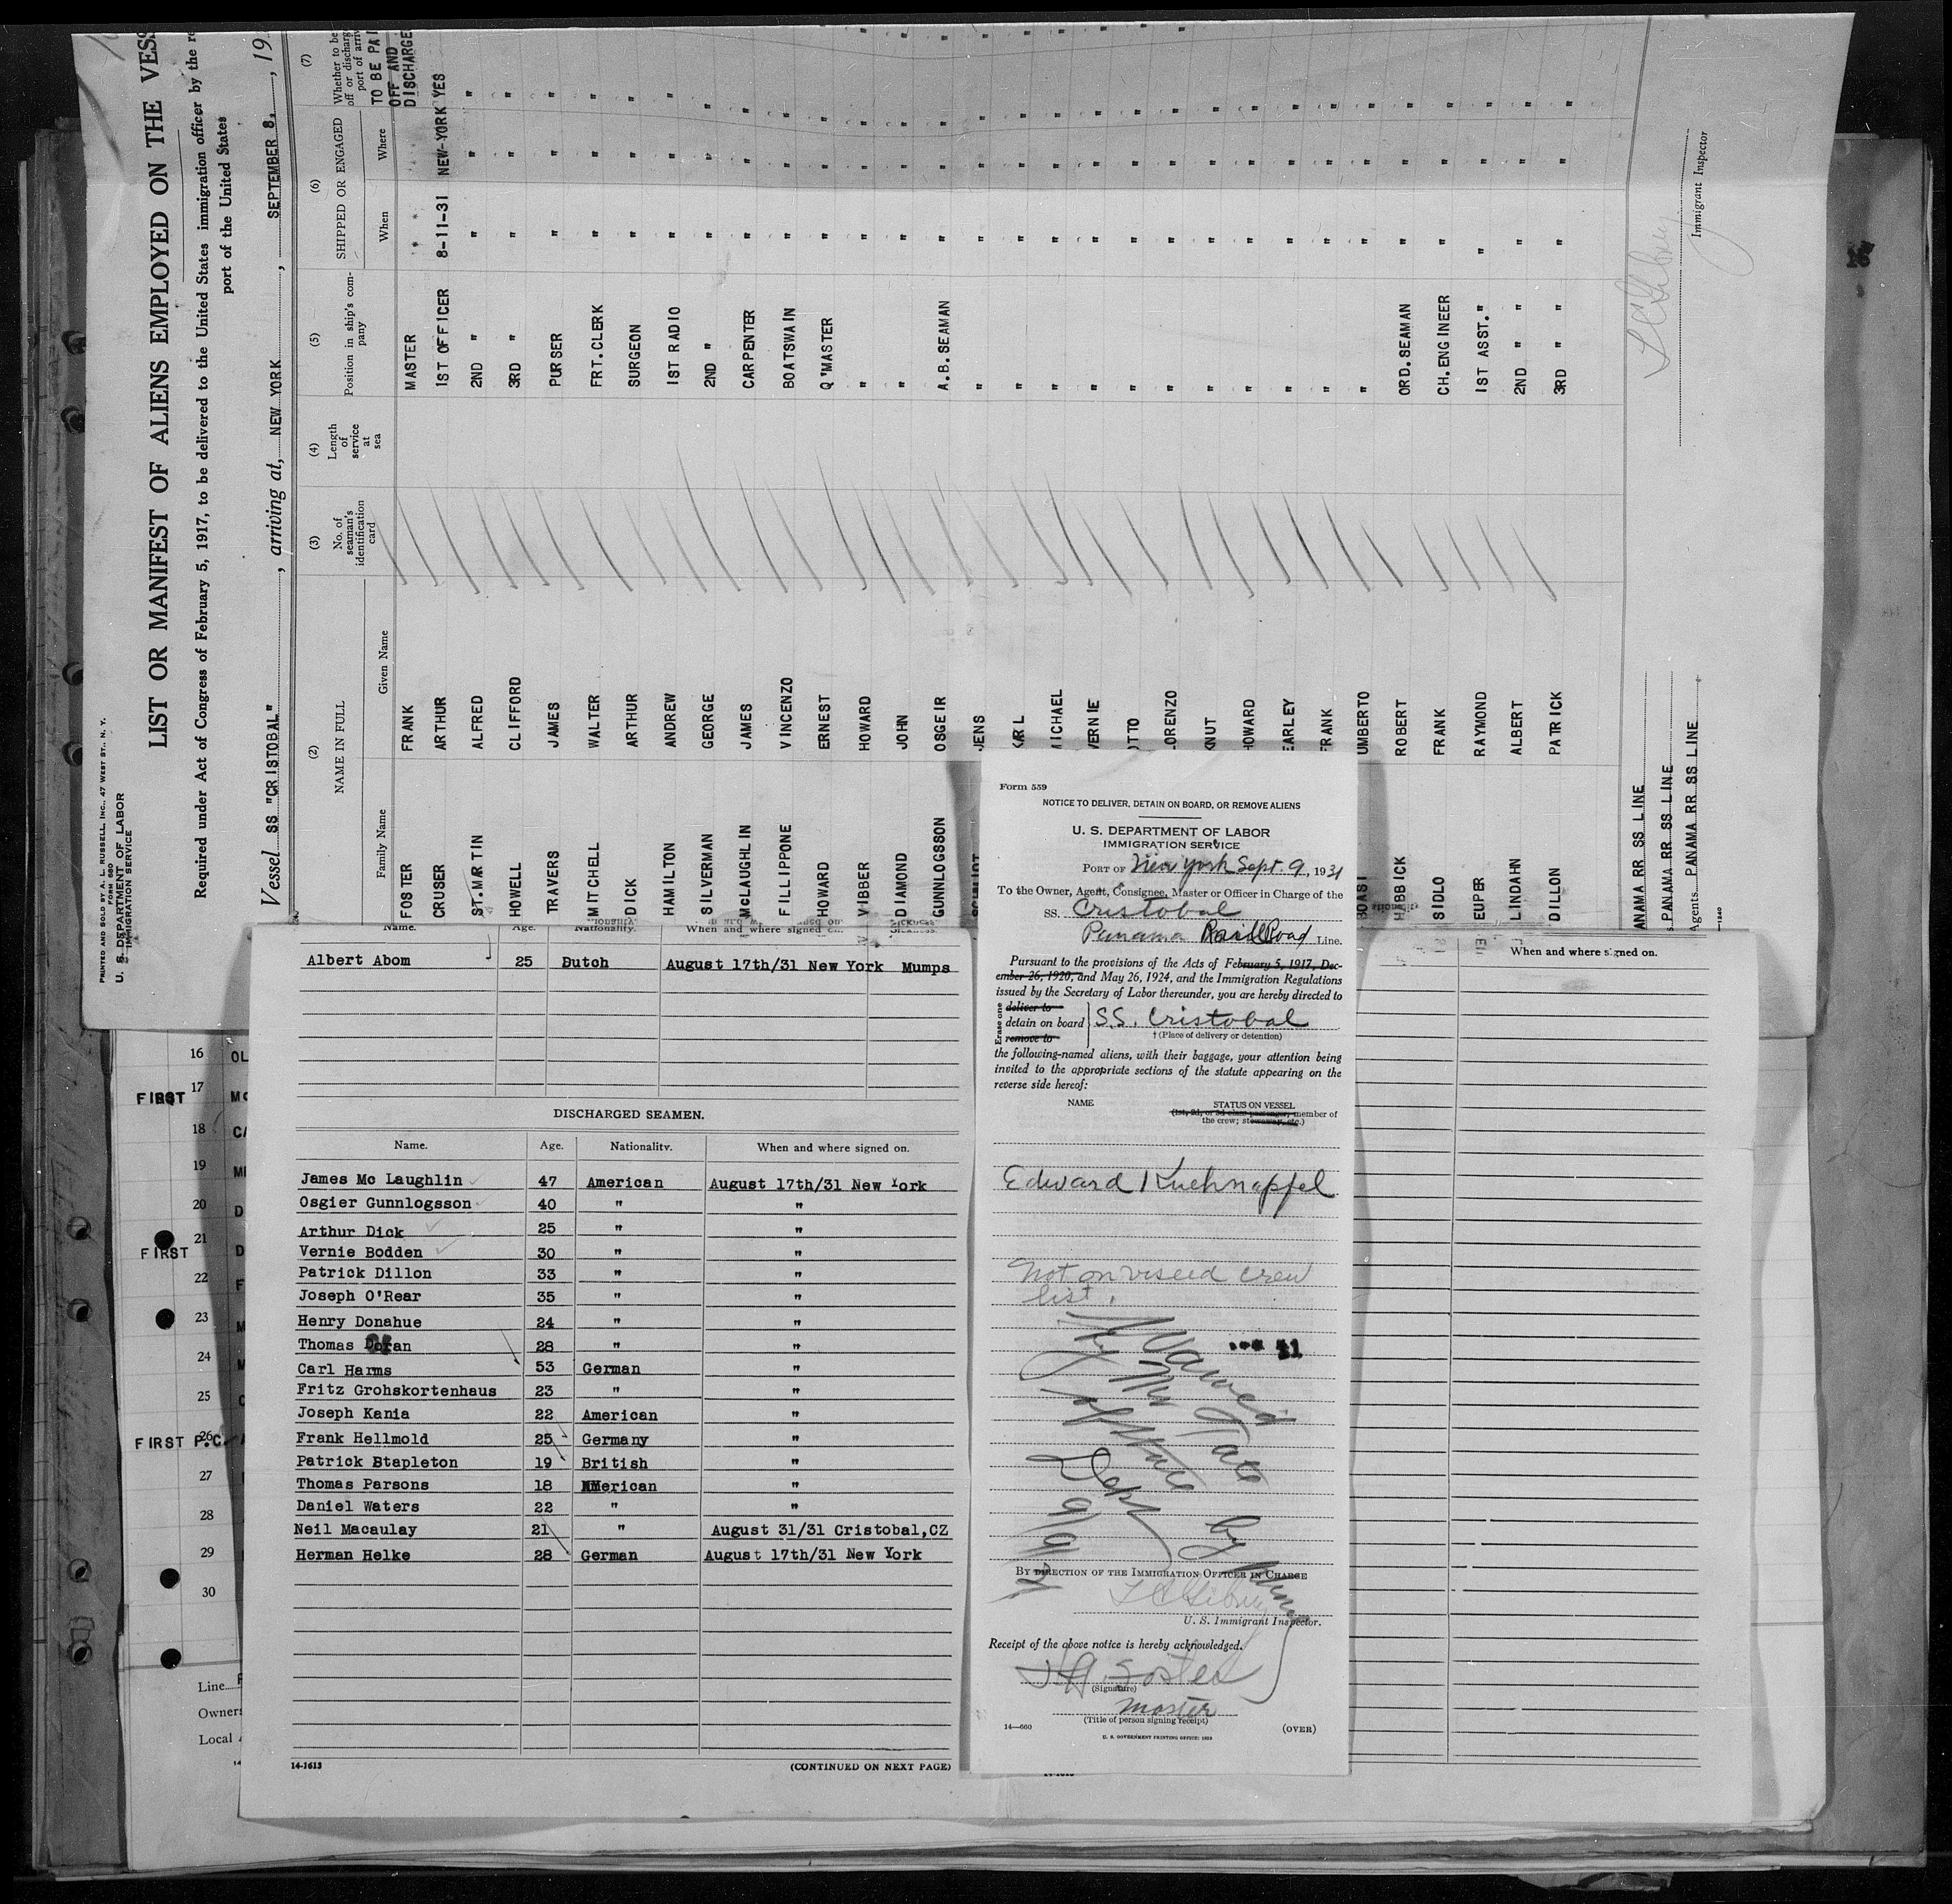 PRINTED AND SOLD BY A. L. RUSSELL, INC., 47 WEST ST., N. Y.
FORM 680
U. S. DEPARTMENT OF LABOR
IMMIGRATION SERVICE
LIST OR MANIFEST OF ALIENS EMPLOYED ON THE VESS
Required under Act of Congress of February 5, 1917, to be delivered to the United States immigration officer by the re
port of the United States
Vessel SS "CRISTOBAL", arriving at, NEW YORK, SEPTEMBER 8, 19
(2) (3) (4) (5) (6) (7)
NAME IN FULL
Family Name Given Name
No. of seaman's identification card
Length of service at sea
Position in ship's company
SHIPPED OR ENGAGED
When Where
Whether to be
off or discharg
port of arriv
TO BE PAI
OFF AND
DISCHARGE
FOSTER FRANK MASTER
CRUSER ARTHUR 1ST OFFICER 8-11-31 NEW-YORK YES
ST.MARTIN ALFRED 2ND " " " "
HOWELL CLIFFORD 3RD " " " "
TRAVERS JAMES PURSER " " "
MITCHELL WALTER FRT.CLERK " " "
DICK ARTHUR SURGEON " " "
HAMILTON ANDREW 1ST RADIO " " "
SILVERMAN GEORGE 2ND " " " "
McLAUGHLIN JAMES CARPENTER " " "
FILLIPPONE VINCENZO BOATSWAIN " " "
HOWARD ERNEST Q'MASTER " " "
VIBBER HOWARD " " " "
DIAMOND JOHN " " " "
GUNNLOGSSON OSGEIR A.B.SEAMAN " " "
JENS " " " "
KARL " " " "
MICHAEL " " " "
VERNIE " " " "
OTTO " " " "
LORENZO " " " "
KNUT " " " "
HOWARD " " " "
EARLEY " " " "
FRANK " " " "
BOASI UMBERTO " " " "
HABBICK ROBERT ORD.SEAMAN " " "
SIDLO FRANK CH.ENGINEER " " "
EUPER RAYMOND 1ST ASST." " " "
LINDAHN ALBERT 2ND " " " " "
DILLON PATRICK 3RD " " " " "
ANAMA RR SS LINE
PANAMA RR SS LINE
Agents PANAMA RR SS LINE
Immigrant Inspector
16
Name. Age. Nationality. When and where signed on. Sickness.
Albert Abom 25 Dutch August 17th/31 New York Mumps
DISCHARGED SEAMEN.
Name. Age. Nationality. When and where signed on.
James Mc Laughlin 47 American August 17th/31 New York
Osgier Gunnlogsson 40 " "
Arthur Dick 25 " "
Vernie Bodden 30 " "
Patrick Dillon 33 " "
Joseph O'Rear 35 " "
Henry Donahue 24 " "
Thomas Doran 28 " "
Carl Harms 53 German "
Fritz Grohskortenhaus 23 " "
Joseph Kania 22 American "
Frank Hellmold 25 Germany "
Patrick Stapleton 19 British "
Thomas Parsons 18 American "
Daniel Waters 22 " "
Neil Macaulay 21 " August 31/31 Cristobal,CZ
Herman Helke 28 German August 17th/31 New York
14-1613
(CONTINUED ON NEXT PAGE)
Form 559
NOTICE TO DELIVER, DETAIN ON BOARD, OR REMOVE ALIENS
U. S. DEPARTMENT OF LABOR
IMMIGRATION SERVICE
PORT OF New York Sept. 9, 1931
To the Owner, Agent, Consignee, Master or Officer in Charge of the
SS. Cristobal
Panama Rail Road Line.
Pursuant to the provisions of the Acts of February 5, 1917, Dec-
ember 26, 1920, and May 26, 1924, and the Immigration Regulations
issued by the Secretary of Labor thereunder, you are hereby directed to
Erase one
deliver to
detain on board SS. Cristobal
remove to
† (Place of delivery or detention)
the following-named aliens, with their baggage, your attention being
invited to the appropriate sections of the statute appearing on the
reverse side hereof:
NAME STATUS ON VESSEL
(1st, 2d, or 3d class passenger; member of
the crew; stowaway, etc.)
Edward Kuehnappel
not on viseed crew
list.
Waived
by
Mr Tate
of State
Dept
9/9/31
BY DIRECTION OF THE IMMIGRATION OFFICER IN CHARGE
U. S. Immigrant Inspector.
Receipt of the above notice is hereby acknowledged.
Foster
(Signature)
Master
(Title of person signing receipt)
14—660
(OVER)
U. S. GOVERNMENT PRINTING OFFICE:
When and where signed on.
16 OL
FIRST 17 Mc
18 CA
19
20 D
FIRST 21 D
22 F
23 M
24 M
25
FIRST P.C. 26
27
28
29
30
Line
Owners
Local